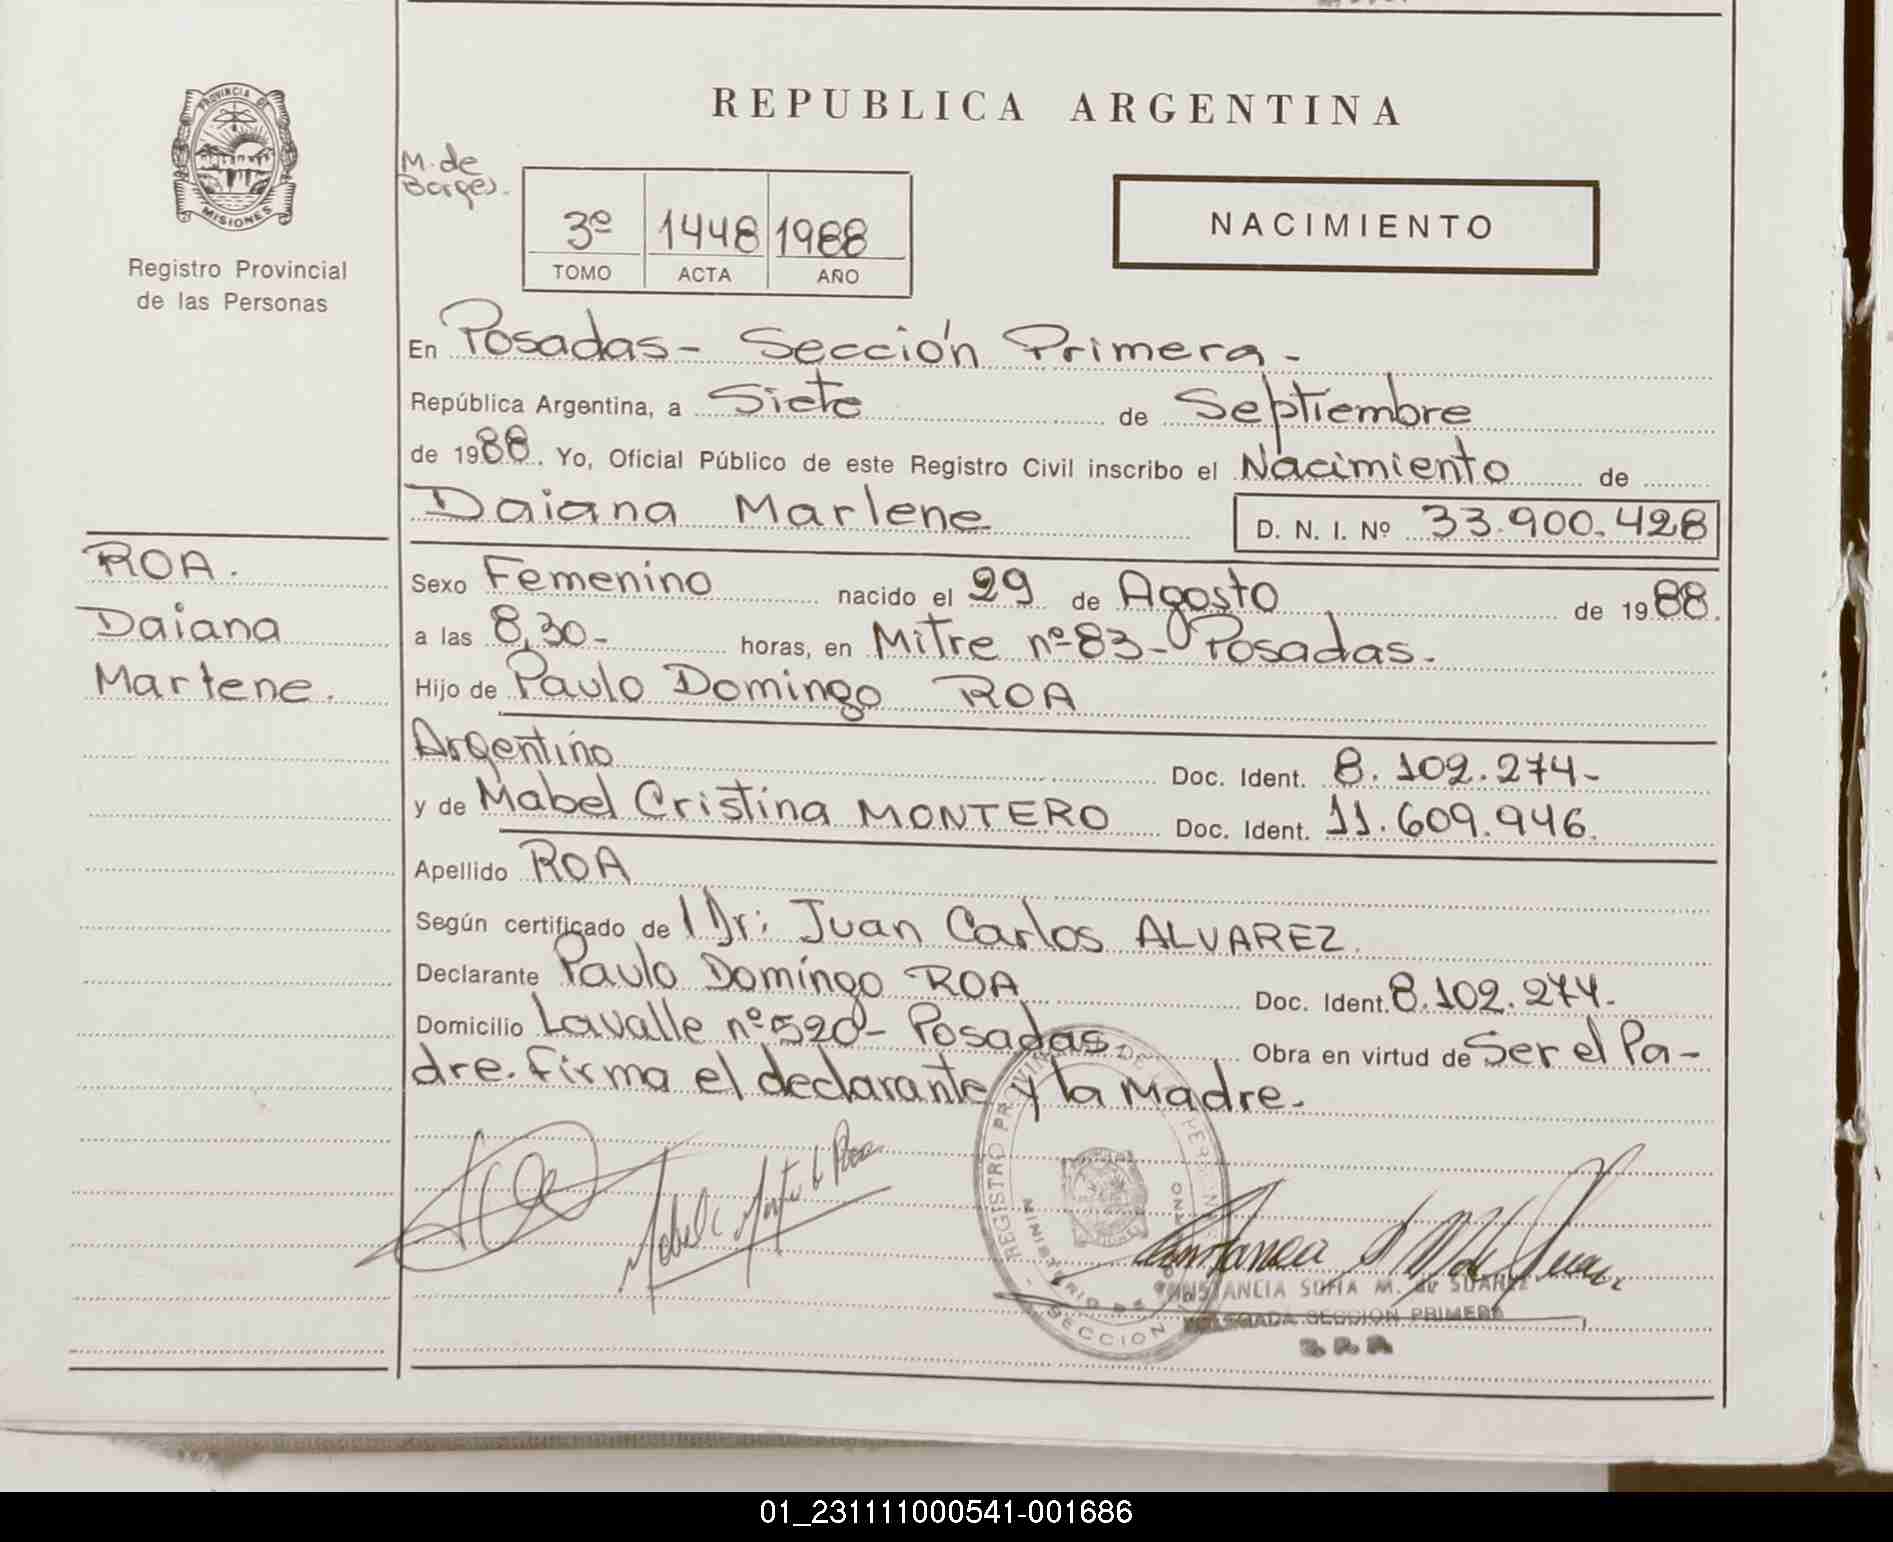 PROVINCIA DE
MISIONES
Registro Provincial
de las Personas
REPUBLICA ARGENTINA
M. de
Borges.
3º 1448 1988
TOMO ACTA AÑO
NACIMIENTO
En Posadas- Sección Primera-
República Argentina, a Siete de Septiembre
de 1988. Yo, Oficial Público de este Registro Civil inscribo el Nacimiento de
Daiana Marlene D. N. I. Nº 33.900.428
ROA.
Daiana
Marlene.
Sexo Femenino nacido el 29 de Agosto de 1988.
a las 8,30- horas, en Mitre nº 83- Posadas.
Hijo de Paulo Domingo ROA
Argentino Doc. Ident. 8.102.274-
y de Mabel Cristina MONTERO Doc. Ident. 11.609.946.
Apellido ROA
Según certificado de l Dr: Juan Carlos ALVAREZ.
Declarante Paulo Domingo ROA Doc. Ident. 8.102.274.
Domicilio Lavalle nº 520- Posadas Obra en virtud de Ser el Pa-
dre. Firma el declarante y la Madre.
REGISTRO PROVINCIAL DE LAS PERSONAS
MINISTERIO DE GOBIERNO
SECCION
CONSTANCIA SOFIA M. de SUAREZ
DELEGADA SECCION PRIMERA
01_231111000541-001686